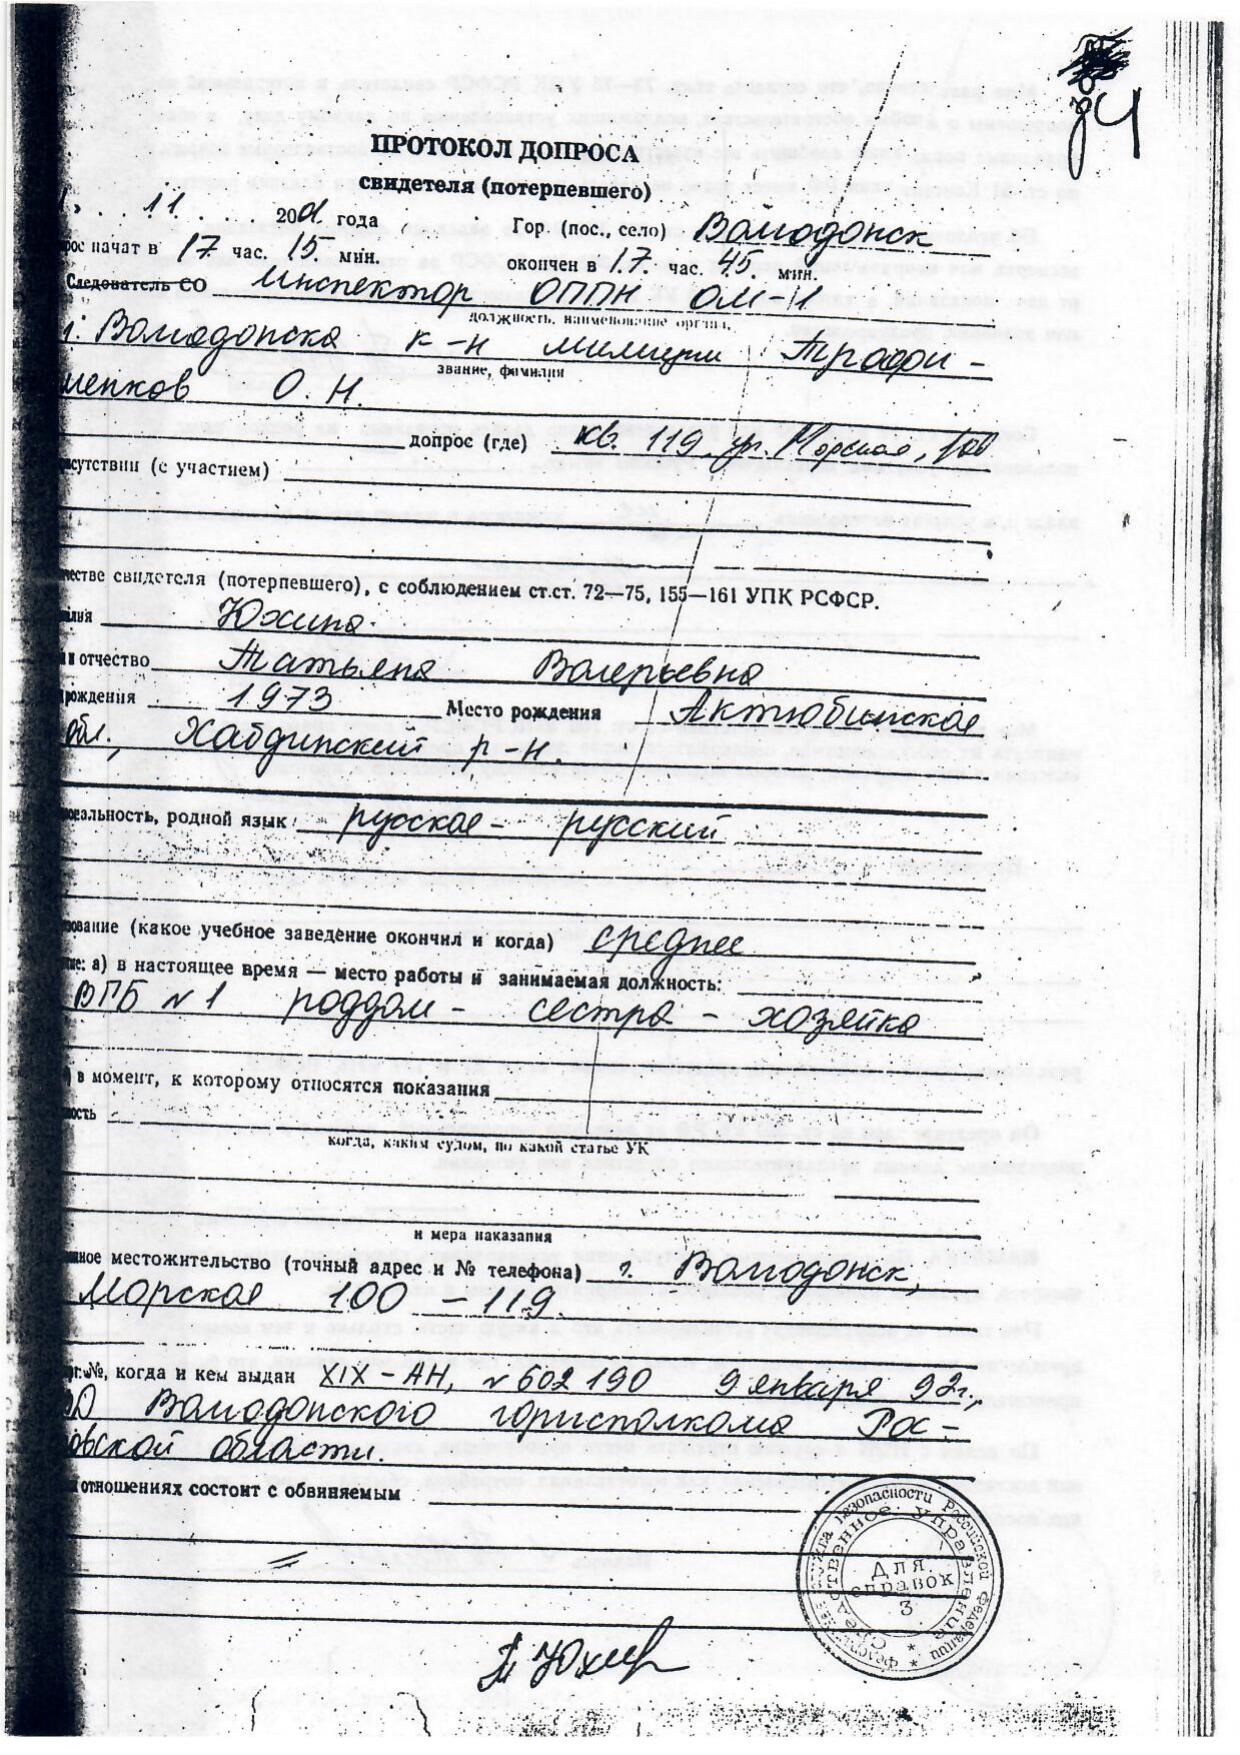 204
ПРОТОКОЛ ДОПРОСА
свидетеля (потерпевшего)
11 2001 года Гор. (пос., село) Волгодонск
рос начат в 17 час. 15 мин. окончен в 17 час. 45 мин.
Следователь СО Инспектор ОППН ОМ-1
должность, наименование органа,
г. Волгодонска к-н милиции Трофи-
менков О. Н.
звание, фамилия
допрос (где) кв. 119 ул. Морская, 100
исутствии (с участием)
честве свидетеля (потерпевшего), с соблюдением ст.ст. 72—75, 155—161 УПК РСФСР.
илия Юхина
и отчество Татьяна Валерьевна
рождения 1973 Место рождения Актюбинская
обл., Хабдинский р-н.
ональность, родной язык: русская - русский
зование (какое учебное заведение окончил и когда) среднее
тие: а) в настоящее время — место работы и занимаемая должность:
ВГБ №1 роддом - сестра - хозяйка
) в момент, к которому относятся показания
мость
когда, каким судом, по какой статье УК
и мера наказания
янное местожительство (точный адрес и № телефона) г. Волгодонск,
Морская 100 - 119
рт: №, когда и кем выдан XIX-АН, №602190 9 января 92г.,
ВД Волгодонского горисполкома Рос-
товской области.
отношениях состоит с обвиняемым
Федеральная служба безопасности Российской Федерации
Следственное управление
Для
справок
3